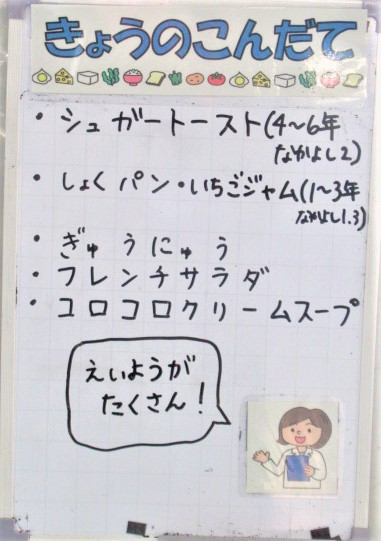 きょうのこんだて
・シュガートースト(4〜6年
なかよし2)
・しょくパン・いちごジャム(1〜3年
なかよし1.3)
・ぎゅうにゅう
・フレンチサラダ
・コロコロクリームスープ
えいようが
たくさん!